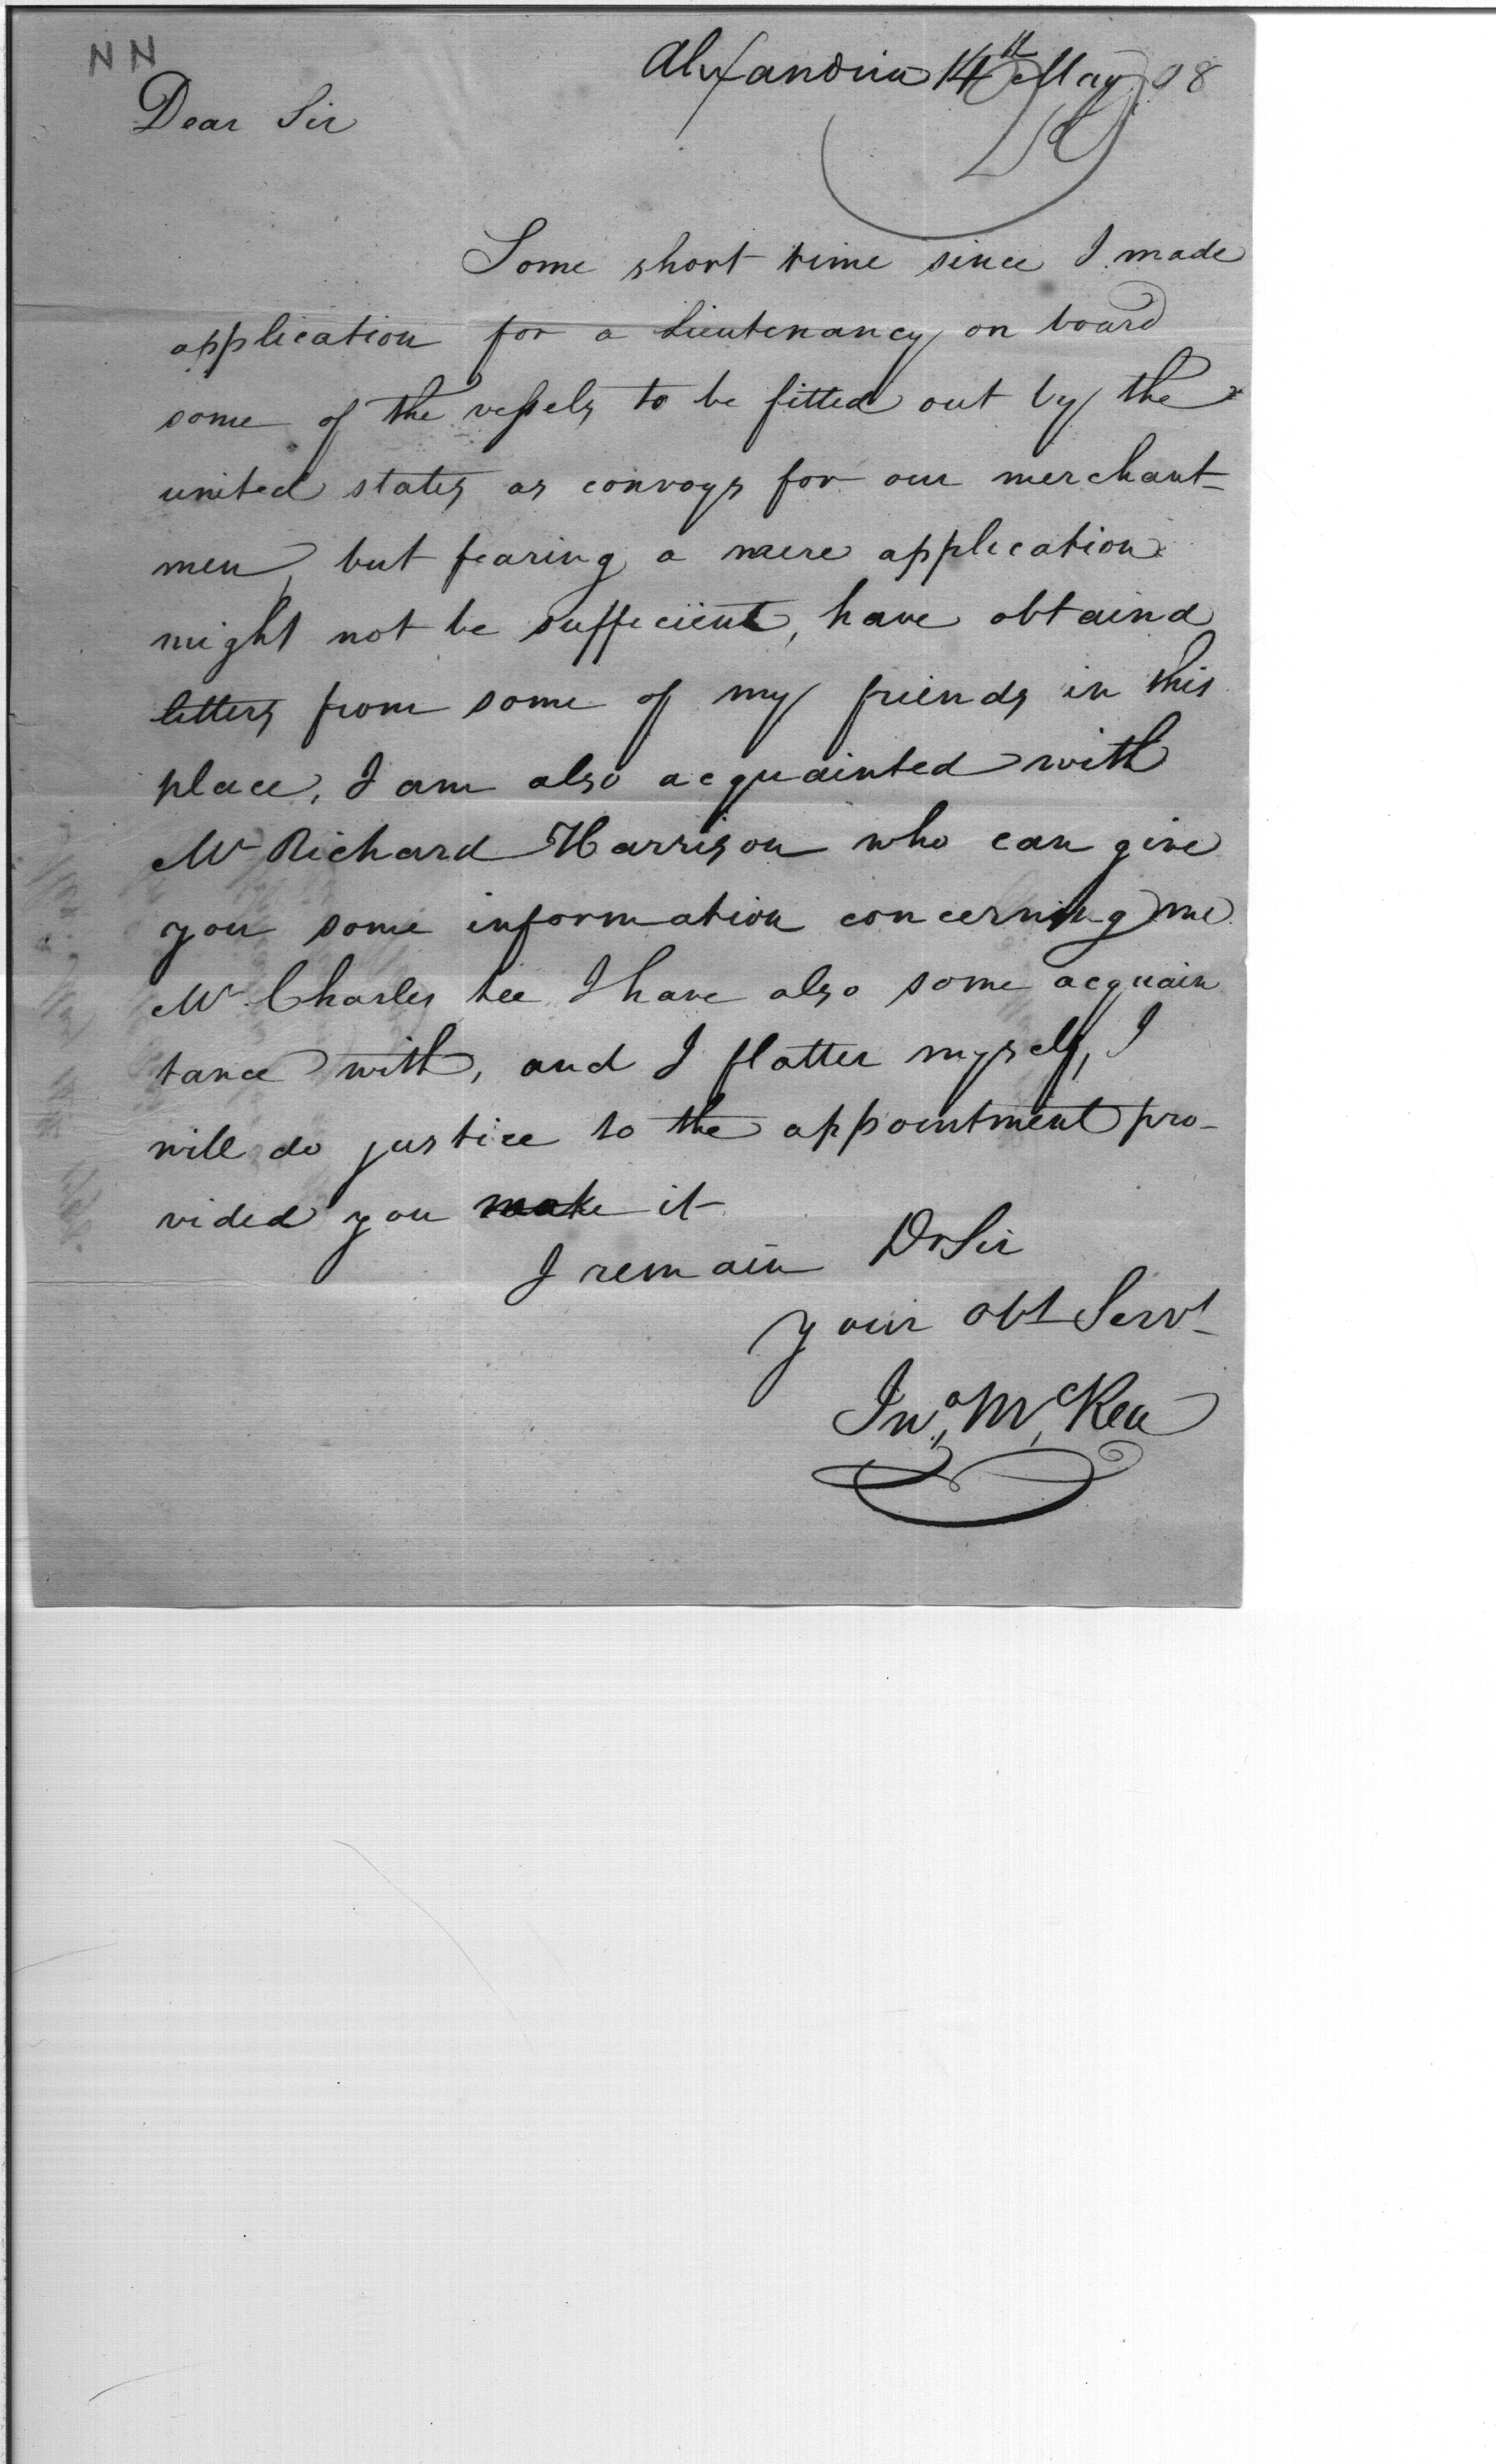 NN
Alexandria 14th May 98
Dear Sir
Some short time since I made
application for a Lieutenancy on board
some of the vessels to be fitted out by the
united states as convoys for our merchant-
men, but fearing a mere application
might not be sufficient, have obtaind
letters from some of my friends in this
place, I am also acquainted with
Mr Richard Harrison who can give
you some information concerning me
Mr Charles Lee I have also some acquain
tance with, and I flatter myself, I
will do justice to the appointment pro-
vided you make it
I remain Dr Sir
your obt Servt
Jno McKea